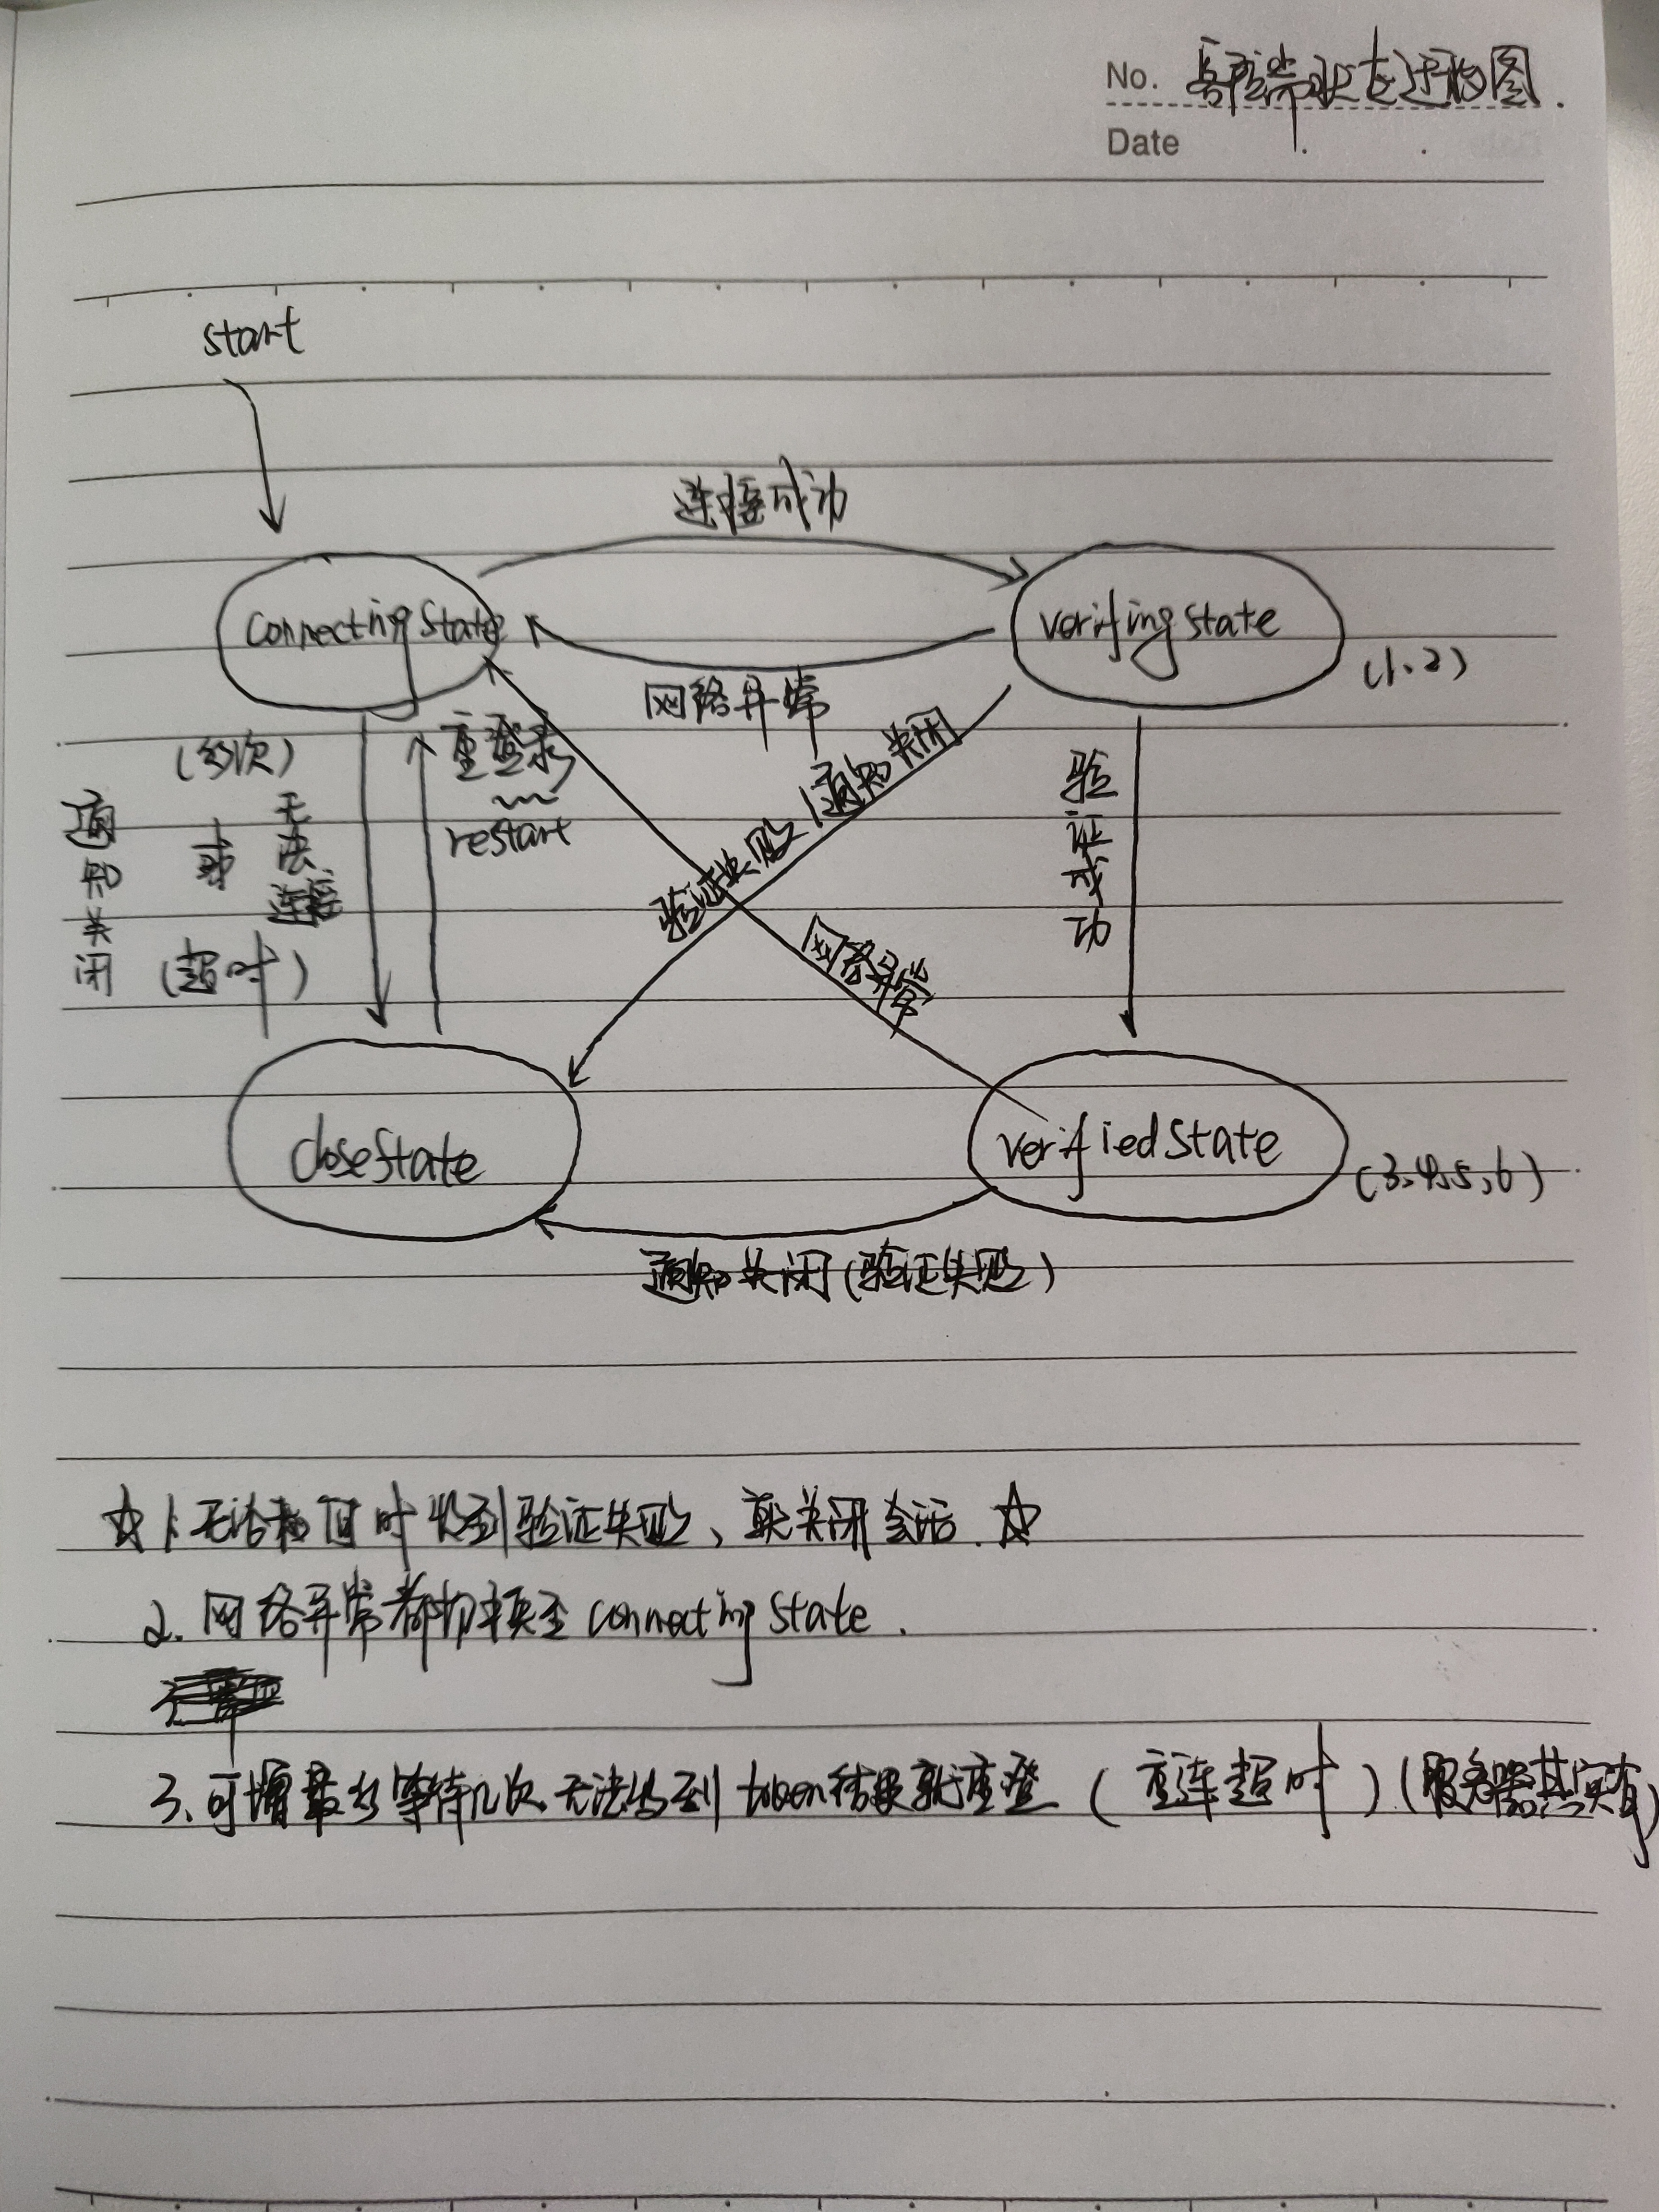 No. 客户端状态迁移图.
Date
start
连接成功
connecting state
verifing state
(1、2)
网络异常
(多次)
重登录
restart
通知关闭
或
无法连接
(超时)
验证失败/通知关闭
验证成功
网络异常
close state
verified state
(3、4、5、6)
通知关闭(验证失败)
☆ 1、无论何时收到验证失败、就关闭会话. ☆
2. 网络异常都切换至 connecting state.
3、可增最多等待几次、无法得到 token 结果就重登 (重连超时) (服务器其实有)